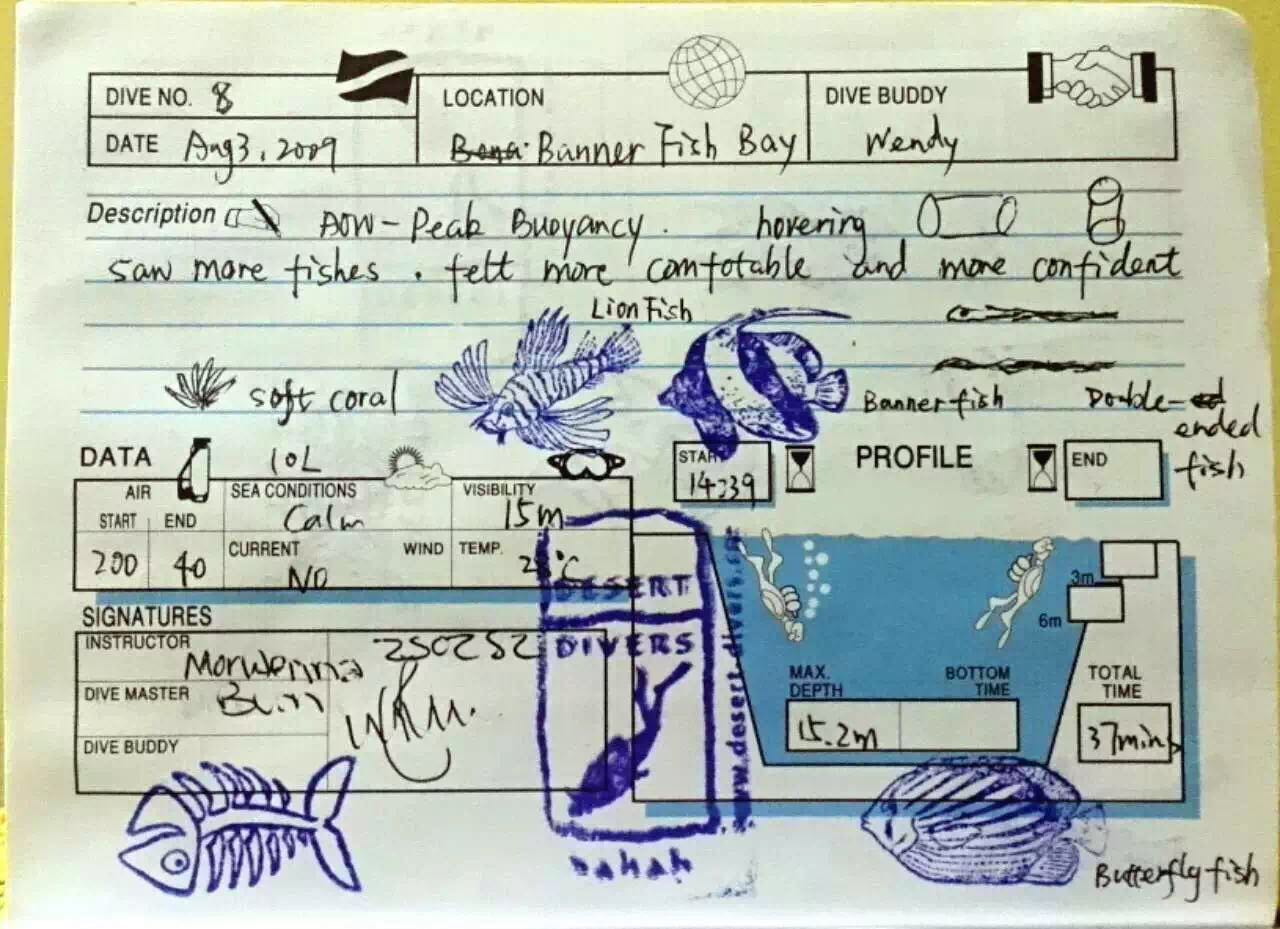 DIVE NO. 8
LOCATION
DIVE BUDDY
DATE Aug 3, 2009
Banner Fish Bay
Wendy
Description AOW - Peak Buoyancy. hovering
saw more fishes. felt more comfotable and more confident
Lion Fish
soft coral
Bannerfish
Double-
ended
fish
DATA
10L
START
14:39
PROFILE
END
AIR
SEA CONDITIONS
VISIBILITY
START END
Calm
15m
200 40
CURRENT WIND
TEMP.
NO
DESERT
DIVERS
www.desert-divers.com
Dahab
SIGNATURES
INSTRUCTOR
Morwenna
250252
DIVE MASTER
DIVE BUDDY
3m
6m
MAX.
DEPTH
BOTTOM
TIME
TOTAL
TIME
15.2m
37mins
Butterfly fish